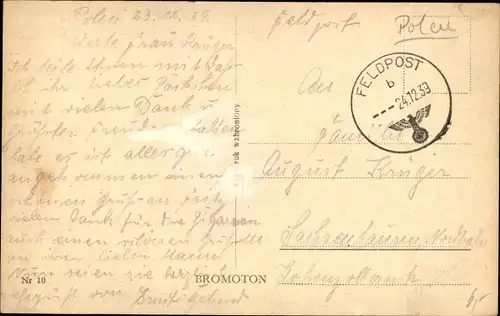 Polen 23.12.39
Werte Frau Krüger
Ich teile Ihnen mit daß
ich ihr liebes Päckchen
mit vielen Dank u
größter Freude erhalten
habe es ist alles gut
angekommen einen
schönen Gruß an
vielen Dank für die Zigarren
auch einen schönen Gruß
an ihren lieben Mann
Nun seien sie herzlich
gegrüßt von Ernst
Nr 10
BROMOTON
ruk wzbroniony
Feldpost
Polen
FELDPOST
b
24.12.39
An
Familie
August Krüger
Sachsenhausen Nordbahn